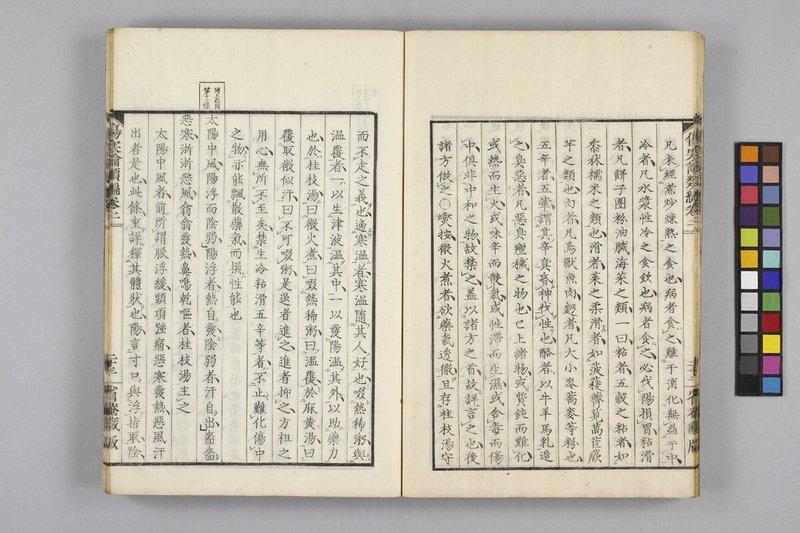 凡未經煮炒燥熟之食也病者食之難于消化無益于中
冷者凡水漿性冷之食飲也病者食之必伐陽損胃粘滑
者凡餅子團粉油膩海菜之類一曰粘者五穀之粘者如
黍秫糯米之類也滑者菜之柔滑者如
芋之類也肉者凡鳥獸魚肉麪者凡大小麥蕎麥等粉也
五辛者五葷謂其辛臭昏神伐性也酪者以牛羊馬乳造
之臭惡者凡惡臭羶穢之物也已上諸物或質鈍而難化
或熱而生火或味辛而散氣或性滯而生濕或合毒而傷
中俱非中和之物故禁之蓋以諸方之首故詳言之也後
諸方倣之○ 按微火煮者欲藥氣透徹且存桂枝湯守
傷寒論類編卷二
而不走之義也適寒溫者寒溫隨其人好也啜熱稀粥與
溫覆者一以生津液溫其中一以發陽溫其外以助藥力
也於桂枝湯曰微火煮曰啜熱稀粥曰溫覆於麻黃湯曰
覆取微似汗曰不可啜粥是退者進之進者抑之方祖之
用心無所不至矣禁生冷粘滑五辛等者不止難化傷中
之物亦能飄散藥氣而損性能也
太陽中風陽浮而陰弱陽浮者熱自發陰弱者汗自出嗇嗇
惡寒淅淅惡風翕翕發熱鼻鳴乾嘔者桂枝湯主之
太陽中風者前所謂脈浮緩頭項強痛惡寒發熱惡風汗
出者是也此條重譯釋其體狀也陽言寸口與浮指取陰
傷寒論類編卷二